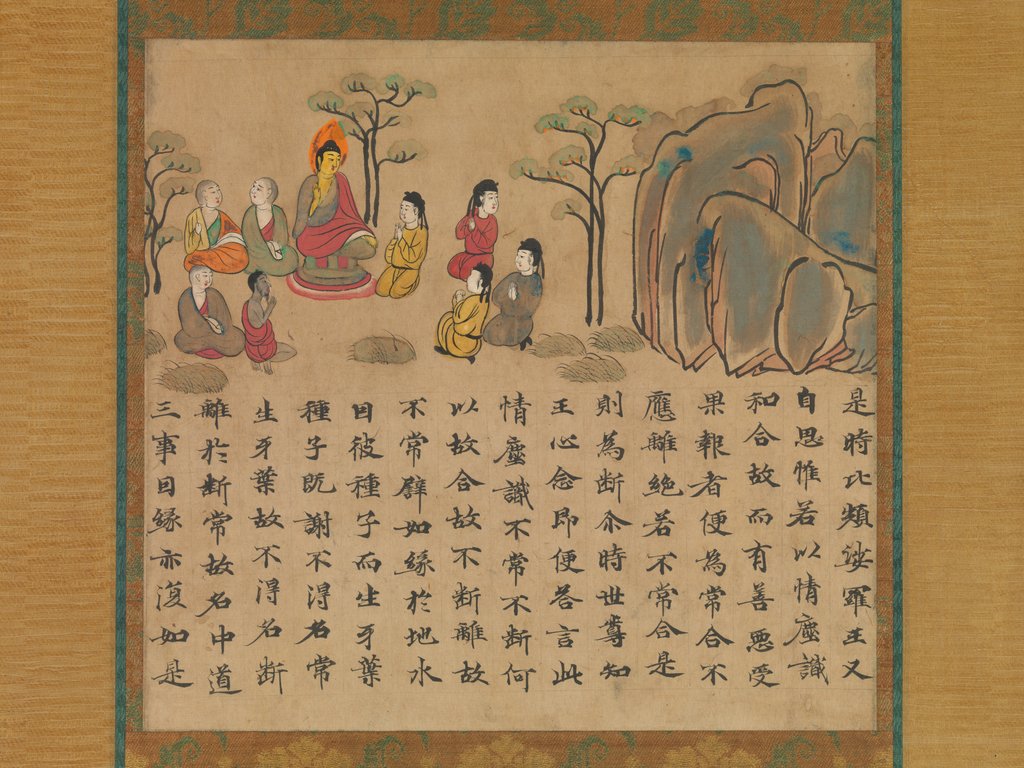 是時比頻娑羅王又
自思惟若以情塵識
和合故而有善惡受
果報者便為常合不
應離絶若不常合是
則為断尒時世尊知
王心念即便荅言此
情塵識不常不断何
以故合故不断離故
不常譬如緣於地水
因彼種子而生牙葉
種子既謝不得名常
生牙葉故不得名断
離於断常故名中道
三事因緣亦復如是